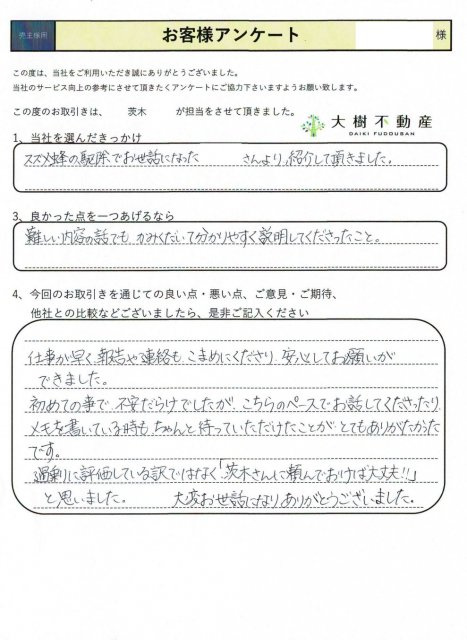 売主様用
お客様アンケート
様
この度は、当社をご利用いただき誠にありがとうございました。
当社のサービス向上の参考にさせて頂きたくアンケートにご協力下さいますようお願い致します。
この度のお取引きは、 茨木 が担当をさせて頂きました。
大樹不動産
DAIKI FUDOUSAN
1、当社を選んだきっかけ
スズメ蜂の駆除でお世話になった さんより、紹介して頂きました。
3、良かった点を一つあげるなら
難しい内容の話でも かみくだいて分かりやすく説明してくださったこと。
4、今回のお取引きを通じての良い点・悪い点、ご意見・ご期待、
他社との比較などございましたら、是非ご記入ください
仕事が早く、報告や連絡も こまめにくださり 安心してお願いが
できました。
初めての事で 不安だらけでしたが、こちらのペースでお話してくださったり
メモを書いている時も ちゃんと待っていただけたことが とてもありがたかった
です。
過剰に評価している訳ではなく「茨木さんに頼んでおけば大丈夫!!」
と思いました。 大変お世話になり ありがとうございました。